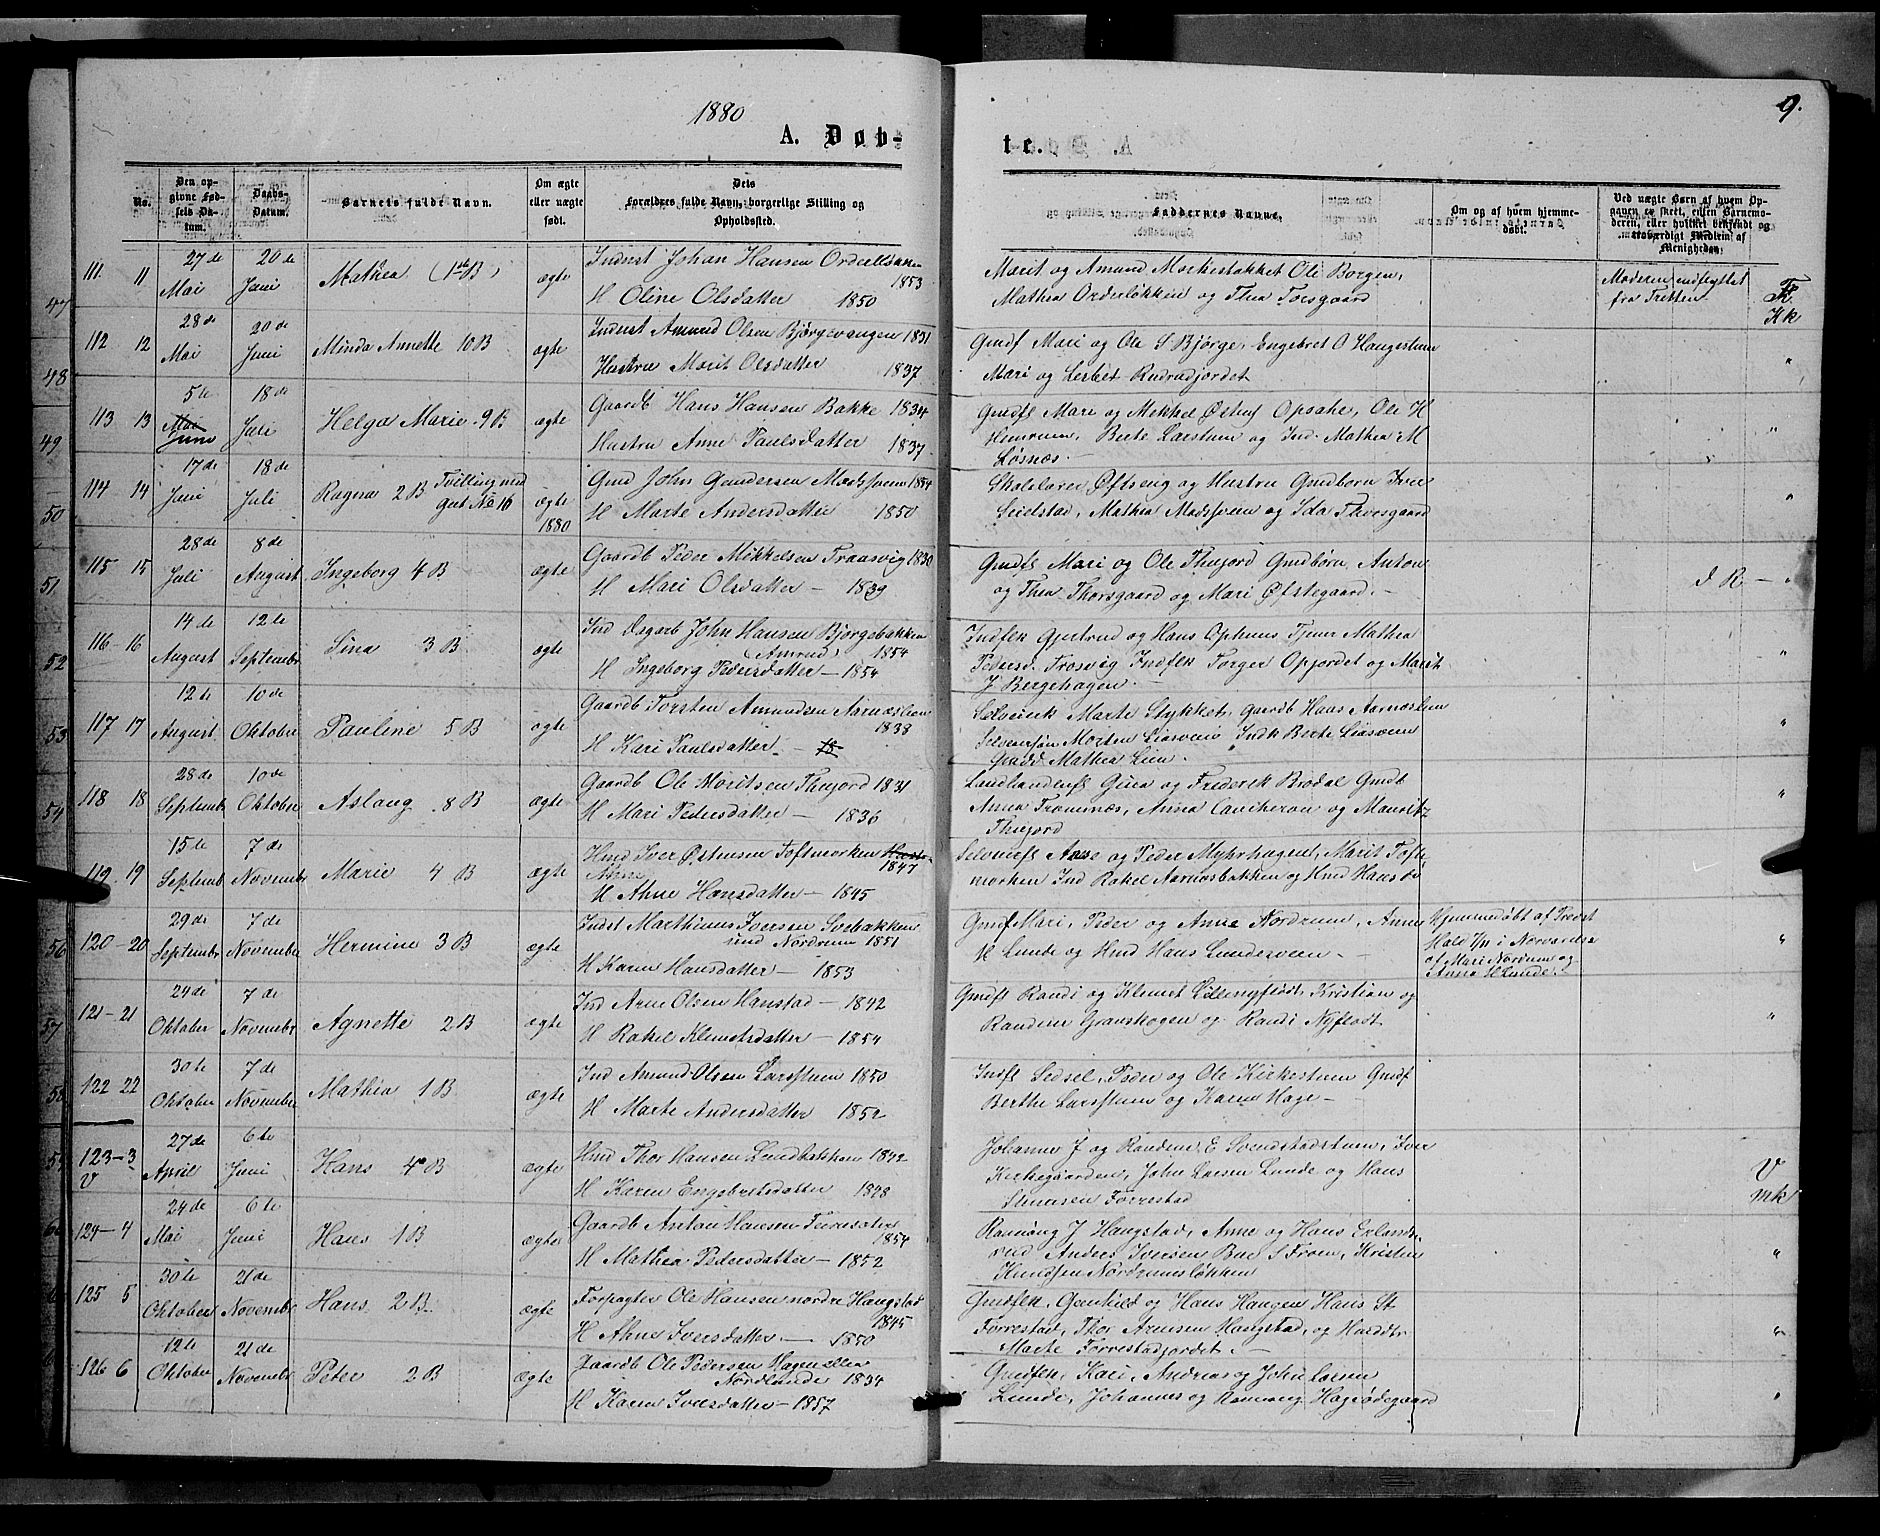 1880
9.
A. Døb-
te.
No.
Den opgivne Fødsels Datum.
Daabs-Datum.
Barnets fulde Navn.
Om ægte eller uægte født.
Dets Forældres fulde Navn, borgerlige Stilling og Opholdssted.
Faddernes Navne.
Om og af hvem hjemmedøbt.
Ved uægte Børn af hvem Opgaven er skeet, enten Barnemoderen, eller hvilket bekjendt og troværdigt Medlem af Menigheden.
111 11 27de Mai 20de Juni Mathea (1ste B) ægte Inderst Johan Hansen 1853
H Oline Olsdatter 1850
Marit og Amund Morkestakket Ole Borgen,
Mathea Orderløkken og Thea Torsgaard
Moderen indflyttet
fra Tretten
Kk
112 12 28de Mai 20de Juni Minda Annette 10B ægte Inderst Amund Olsen Bjørgevangen 1831
Hustru Marit Olsdatter 1837
Gmdf Mari og Ole S Bjørge, Engebret O Haugestuen
Mari og Lisbet Rudsrudjordet
"
113 13 5te Mai Juni 18de Juli Helga Marie 9B ægte Gaardb Hans Hansen Bakke 1834
Hustru Anne Paulsdatter 1837
Gmdfk Mari og Mikkel Opsahe, Ole H
Berte Larstuen og Ind. Mathea M
Løsnæs
"
114 14 17de Juni 18de Juli Ragna 2B Tvilling med
Gut No 16 ægte 1880 Gmd John Gundersen Madssveen 1854
H Marte Andersdatter 1850
Skolelærer Øfsteng og Hustru Gmdbørn Iver
Leielstad, Mathea Madssveen og Ida Thorsgaard
"
115 15 28de Juli 8de August Ingeborg 4B ægte Gaardb Peder Mikkelsen Traasvig 1830
H Mari Olsdatter - 1839
Gmdfk Mari og Ole Thujord Gmdbørn Anton
og Thea Thorsgaard og Mari Øfstegaard.
d R -
116-16 14de August 12te September Sina 3B ægte Ind Dagarb John Hansen Bjørgebakken
(Amrud) 1854
H Ingeborg Pedersdatter - 1854
Indfk Gjertrud og Hans Ophuus Tjener Mathea
Pedersd. Trosvig Indfk Torger Opjordet og Marit
J Bergehagen
"
117 17 12te August 10de Oktober Pauline 5B ægte Gaardb Torsten Amundsen Aarnæslien
1838
H Kari Paulsdatter - 18
Selveierk Marte Stykket, Gaardb Hans Aarnæslien
Selveiersøn Morten Liasveen Indk Berte Liasveen
Gmdd. Mathea Lien.
"
118 18 28de September 10de Oktober Aslaug 8B ægte Gaardb Ole Moritsen Thujord 1831
H Mari Pedersdatter - 1836
Landhandlerfk Gina og Frederik Brodal Gmdb
Anna Tromnæs, Anna og Mauritz
Thujord
"
119 19 15te September 7de November Marie 4B ægte Hmd Iver Østensen Toftmorken
1847
H Anne Hansdatter - 1845
Selveierfk Anne og Peder Myhrhagen, Marit Toft-
morken Ind Rakel Aarnæsbakken og Hmd Hans do
120-20 29de September 7de November Hermine 3B ægte Indst Marthinus Iversen Svebakken
Nordrum 1851
H Karen Hansdatter - 1853
Gmdf Mari, Peder og Anne Nordrum, Anne
H Lunde og Hmd Hans Lundesveen -
Hjemmedøbt af Præst
Hald 7/11 i Nærværelse
af Mari Nordrum og
Anna H Lunde
"
121-21 24de Oktober 7de November Agnette 2B ægte Ind Arne Olsen Hanstad - 1842
H Rakel Klemetsdatter - 1854
Gmdfk Randi og Klemet Lillenyflødt, Kristian og
Randine Granskogen og Randi Nyflødt
"
122 22 30te Oktober 7de November Mathea 1B ægte Ind Amund Olsen Larsstuen 1850
H Marte Andersdatter 1852
Indfk Sedsel, Peder og Ole Kirkestuen Gmdf
Berthe Larsstuen og Karen Hage -
123-3 V 27de April 6te Juni Hans 4B ægte Hmd Thor Hansen Lundbakken 1842
H Karen Engebretsdatter 1848
Johanne J og Randine E Svendstadstuen, Iver
Kirkegaarden, John Larsen Lunde og Hans
Simensen Forrestad
V
mk
124-4 24de Mai 6te Juni Hans 1B ægte Gaardb Anton Hansen
1854
H Mathea Pedersdatter - 1852
Rønnaug J Haugstad, Anne og Hans Erlands-
rud Anders Iversen Bue S From, Kristen
Knudsen Nordrumsløkken
"
125 5 30te Oktober 21de November Hans 2B ægte Forpagter Ole Hansen nordre Haugstad
1845
H Anne Iversdatter - 1850
Gmdfk, Gunhild og Hans Haugen Hans St
Forrestad, Thor Arnesen Haugstad, og
Marte Forrestadjordet -
"
126 6 12te Oktober 21de November Peter 2B ægte Gaardb Ole Pedersen Hagen eller
Nordlunde 1834
H Karen Iversdatter - 1857
Gmdfk, Kari, Andreas og John Larsen
Lunde, Johannes og Rønnaug Hageødegaard
"
47
48
49
50
51
52
53
54
56
57
58